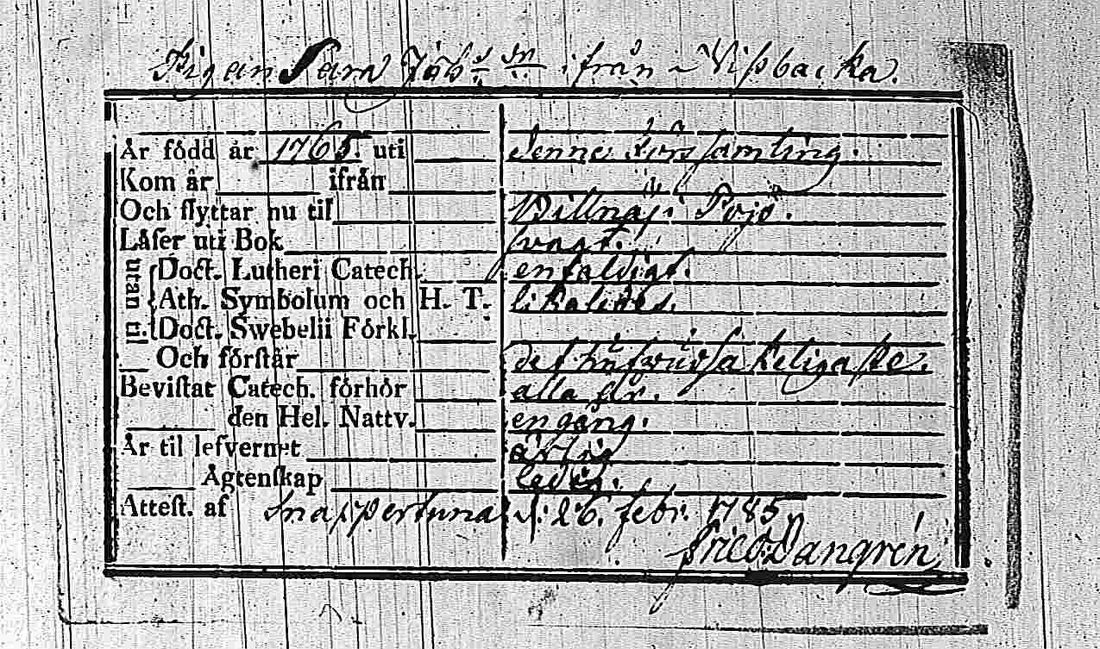 Pigan Sara Jöbs dr ifrån Wissbacka.
År född år 1765. uti denna Församling.
Kom år ifrån
Och flyttar nu til Billnäs i Pojo.
Läser uti Bok svagt.
utan til
Doct. Lutheri Catech. enfaldigt.
Ath. Symbolum och H. T. likaledes.
Doct. Swebelii Förkl.
Och förstår det hufvudsakeligaste.
Bevistat Catech. förhör alla år.
den Hel. Nattv. en gång.
År til lefvernet ärlig
Ägtenskap ledig.
Attest. af Snappertuna d. 26. febr. 1785.
Fried: Dangrén